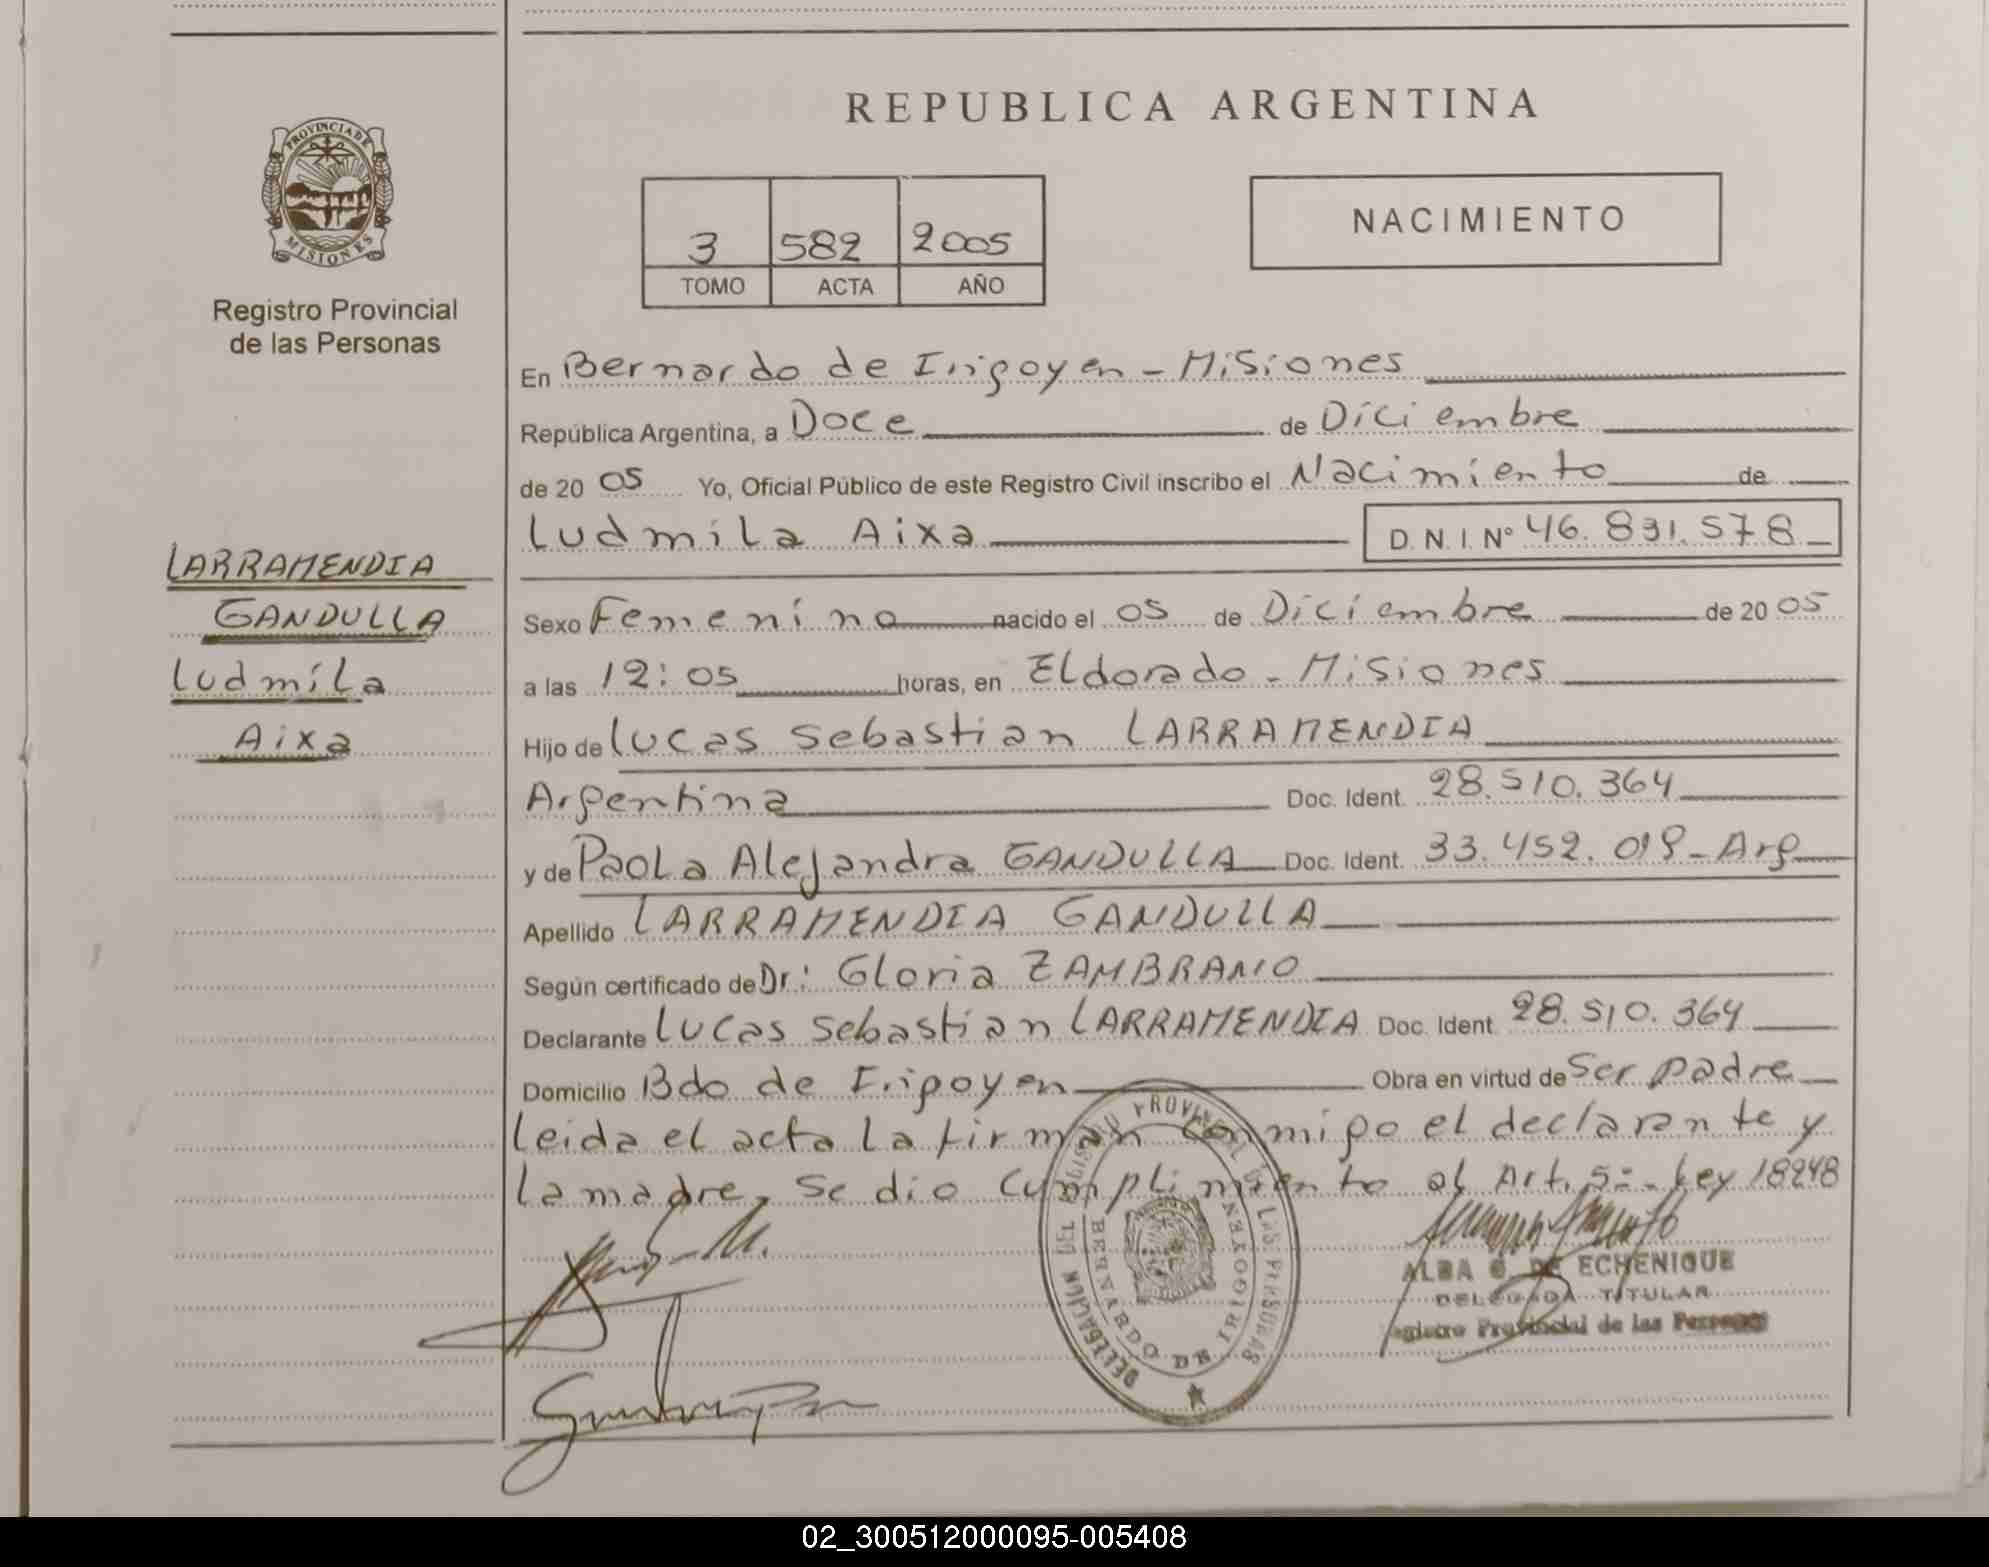 REPUBLICA ARGENTINA
PROVINCIA DE MISIONES
Registro Provincial
de las Personas
3 582 2005
TOMO ACTA AÑO
NACIMIENTO
En Bernardo de Irigoyen - Misiones
República Argentina, a Doce de Diciembre
de 20 05 Yo, Oficial Público de este Registro Civil inscribo el Nacimiento de
Ludmila Aixa D.N.I. Nº 46.831.578
LARRAMENDIA
GANDULLA
Ludmila
Aixa
Sexo Femenino nacido el 05 de Diciembre de 20 05
a las 12:05 horas, en Eldorado - Misiones
Hijo de Lucas Sebastian LARRAMENDIA
Argentina Doc. Ident. 28.510.364
y de Paola Alejandra GANDULLA Doc. Ident. 33.452.019 - Arg
Apellido LARRAMENDIA GANDULLA
Según certificado de Dr: Gloria ZAMBRANO
Declarante Lucas Sebastian LARRAMENDIA Doc. Ident 28.510.364
Domicilio Bdo de Irigoyen Obra en virtud de Ser padre
Leida el acta La firman conmigo el declarante y
La madre, se dio cumplimiento al Art. 5º - Ley 18248
DELEGACION DEL REGISTRO PROVINCIAL DE LAS PERSONAS
BERNARDO DE IRIGOYEN
ALBA G. DE ECHENIQUE
DELEGADA TITULAR
Registro Provincial de las Personas
02_300512000095-005408